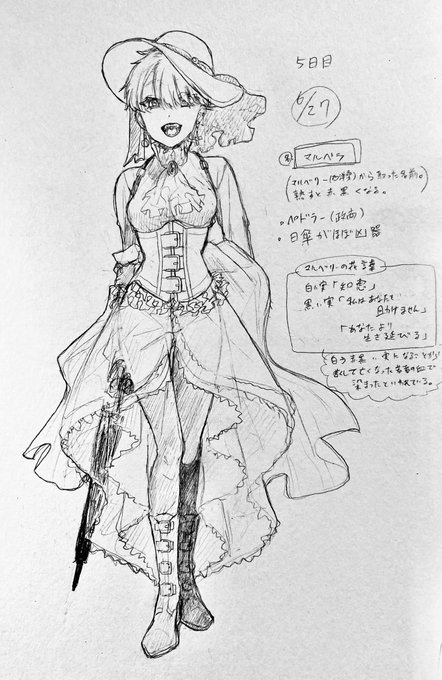 5日目
6/27
名 マルベラ
(マルベリー(桑)から取った名前。
熟すと赤黒くなる。)
・ペドラー(政商)
・日傘がほぼ凶器
マルベリーの花言葉
白い実「知恵」
黒い実「私はあなたを
助けません」
「あなたより
生き延びる」
白から黒い実になることから
して亡くなった
染まったといわれている。